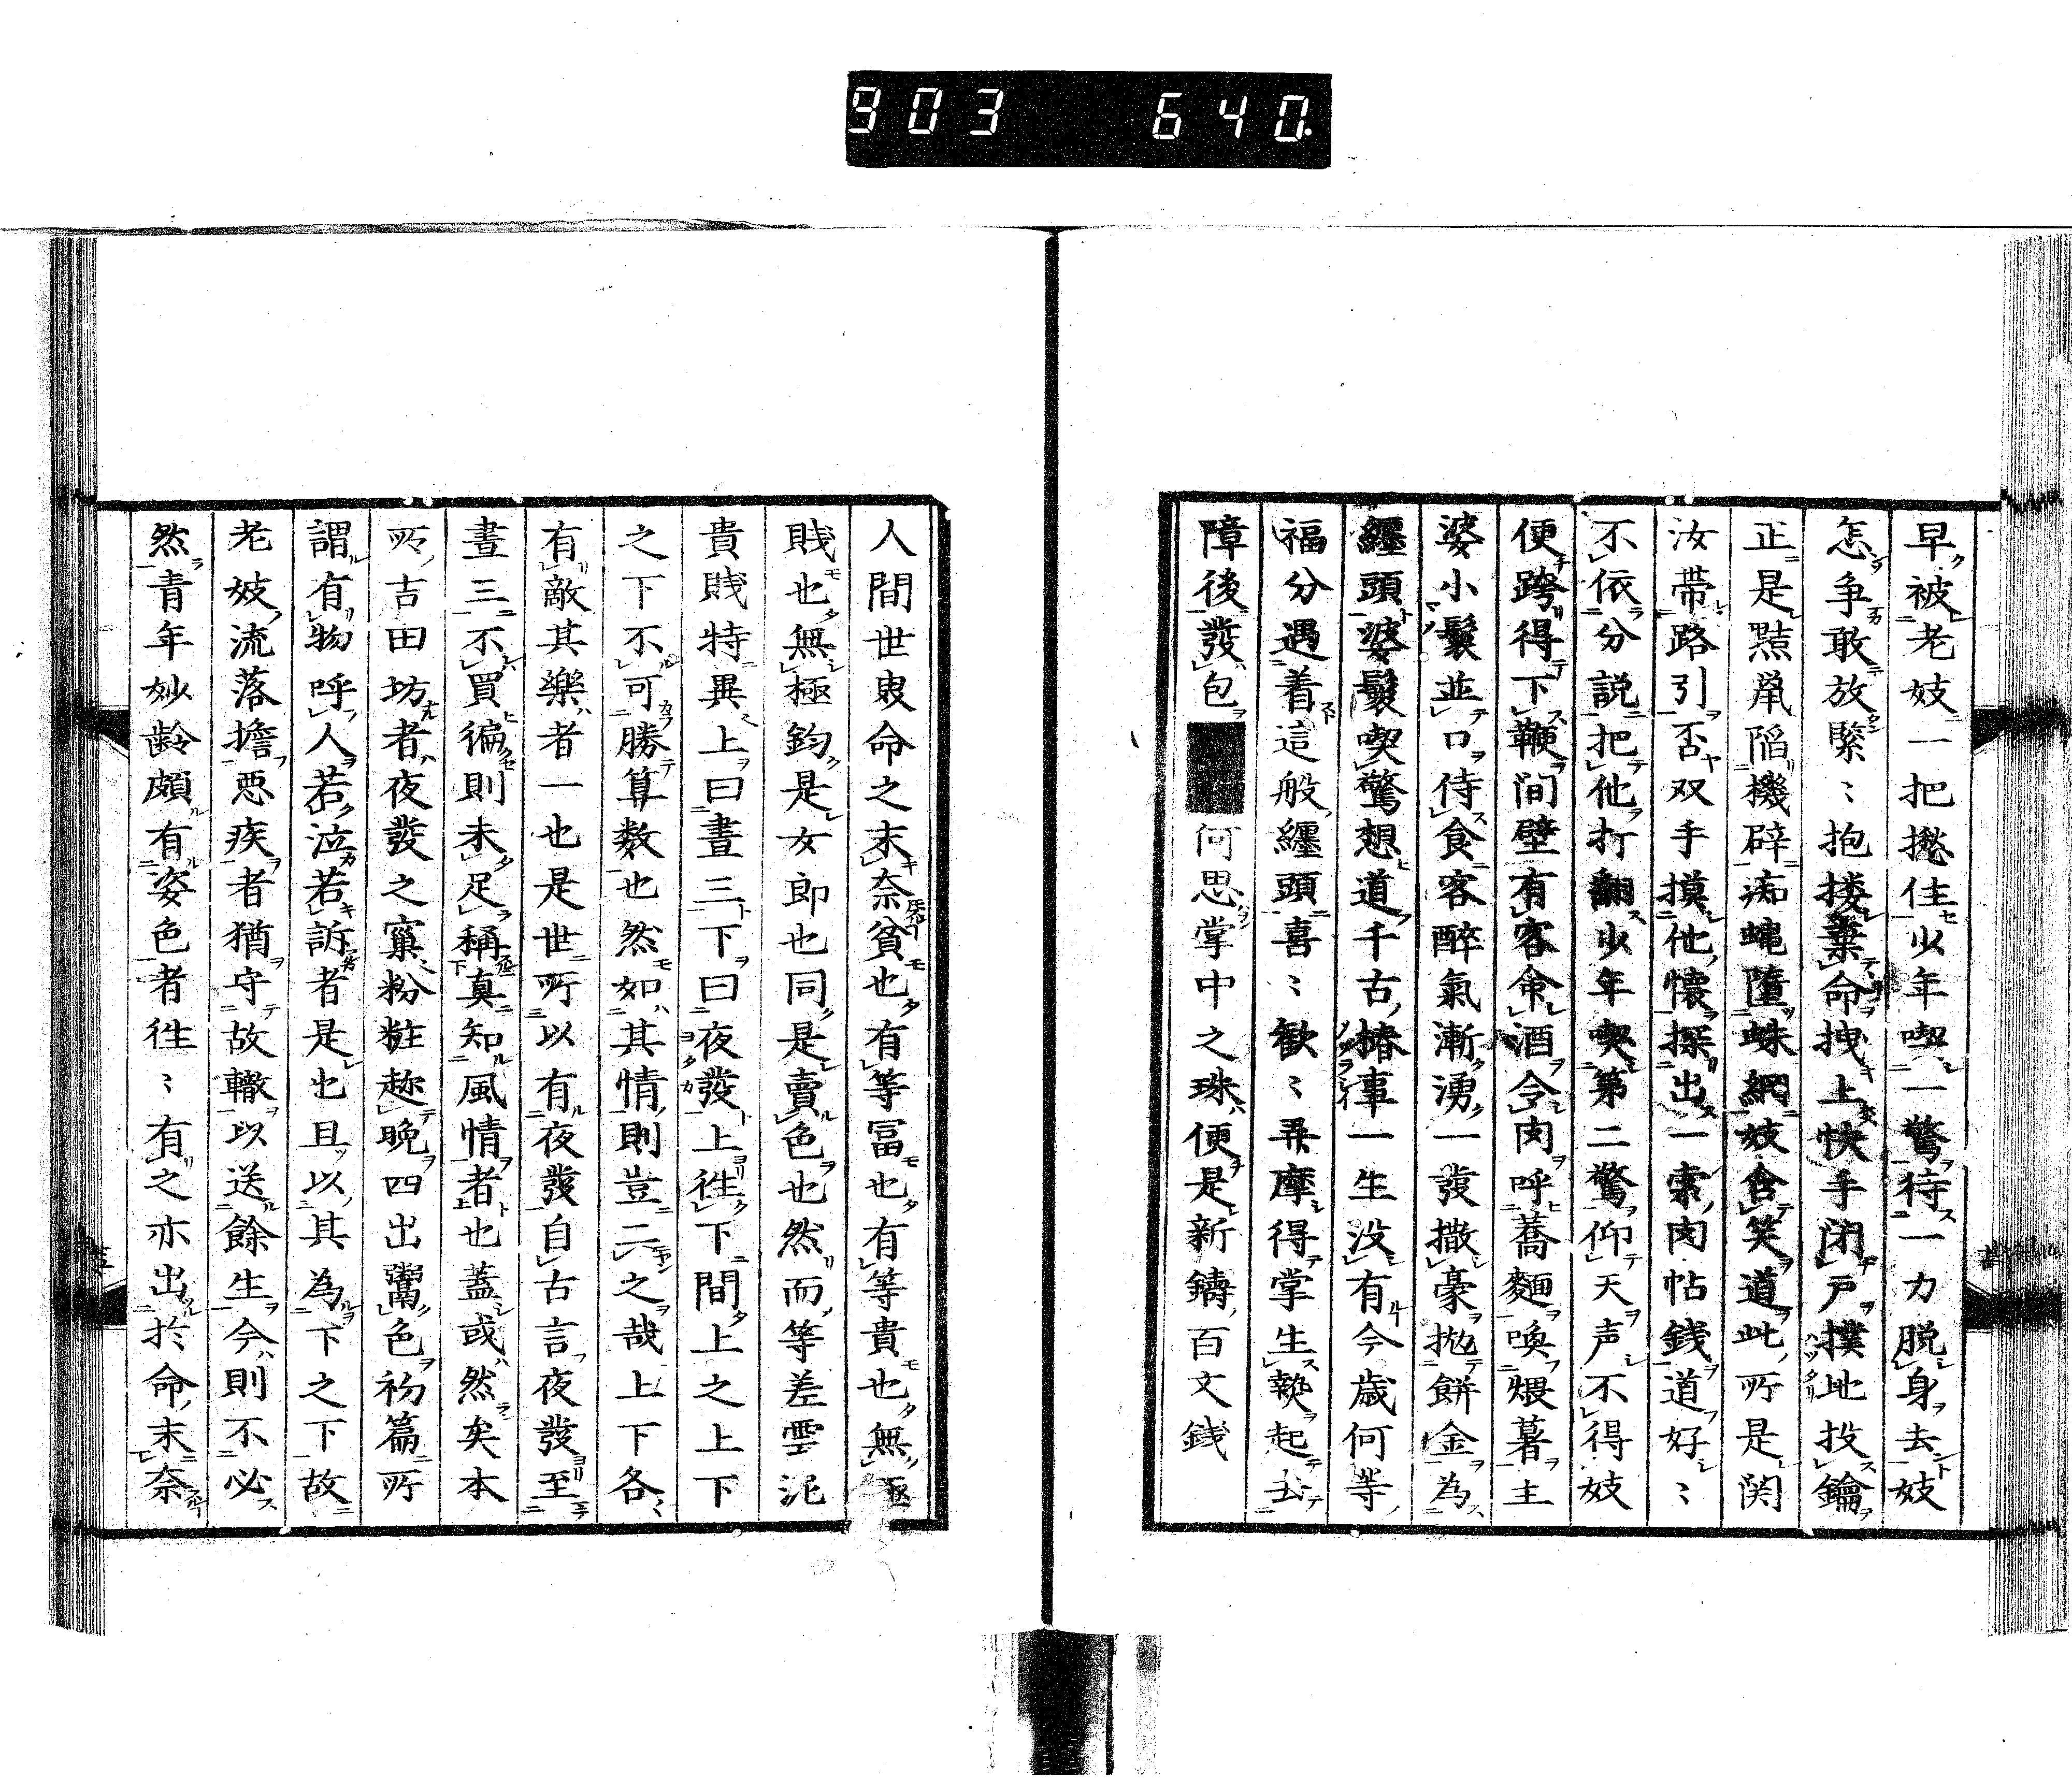 903 640.
早被老妓一把撚住少年喫一驚待一力脱身去妓
怎争敢放緊〻抱搂棄命拽上快手闭戸撲地投鑰
正是㸃鼡陷機辟痴蝇墮蛛網妓含笑道此所是関
汝帯路引否双手摸他懷探出一索肉帖銭道好〻
不依分説把他打翻少年喫第二驚仰天声不得妓
便跨得下鞭间壁有客命酒令肉呼蕎麺喚煨薯主
婆小鬟並口侍食客醉氣漸湧一發撒豪抛餅金為
纏頭婆鬟喫驚想道千古椿事一生没有今歳何等
福分遇着這般纏頭喜〻歓〻弄摩得掌生熱起去
障後發包 何思掌中之珠便是新鑄百文銭
人間世㬰命之末奈貧也有等冨也有等貴也無極
賎也無極鈞是女郎也同是賣色也然而等差雲泥
貴賎特異上曰晝三下曰夜發上徃下間上之上下
之下不可勝算数也然如其情則豈二之哉上下各
有敵其樂者一也是世所以有夜發自古言夜發至
晝三不買徧則未足稱真知風情者也蓋或然矣本
所吉田坊者夜發之窠粉粧趂晩四出鬻色衯篇所
謂有物呼人若泣若訴者是也且以其為下之下故
老妓流落擔悪疾者猶守故轍以送餘生今則不必
然青年妙齢頗有姿色者徃〻有之亦出於命末奈